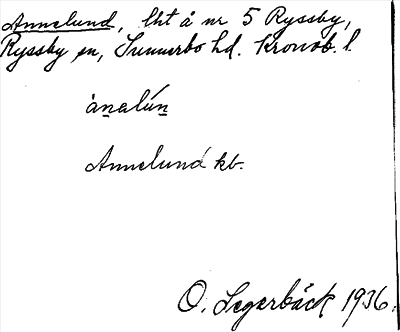 Annelund, lht å nr 5 Ryssby,
Ryssby sn, Sunnerbo hd. Kronob. l.
ànalún
Annelund kb.
O. Segerbäck 1936.